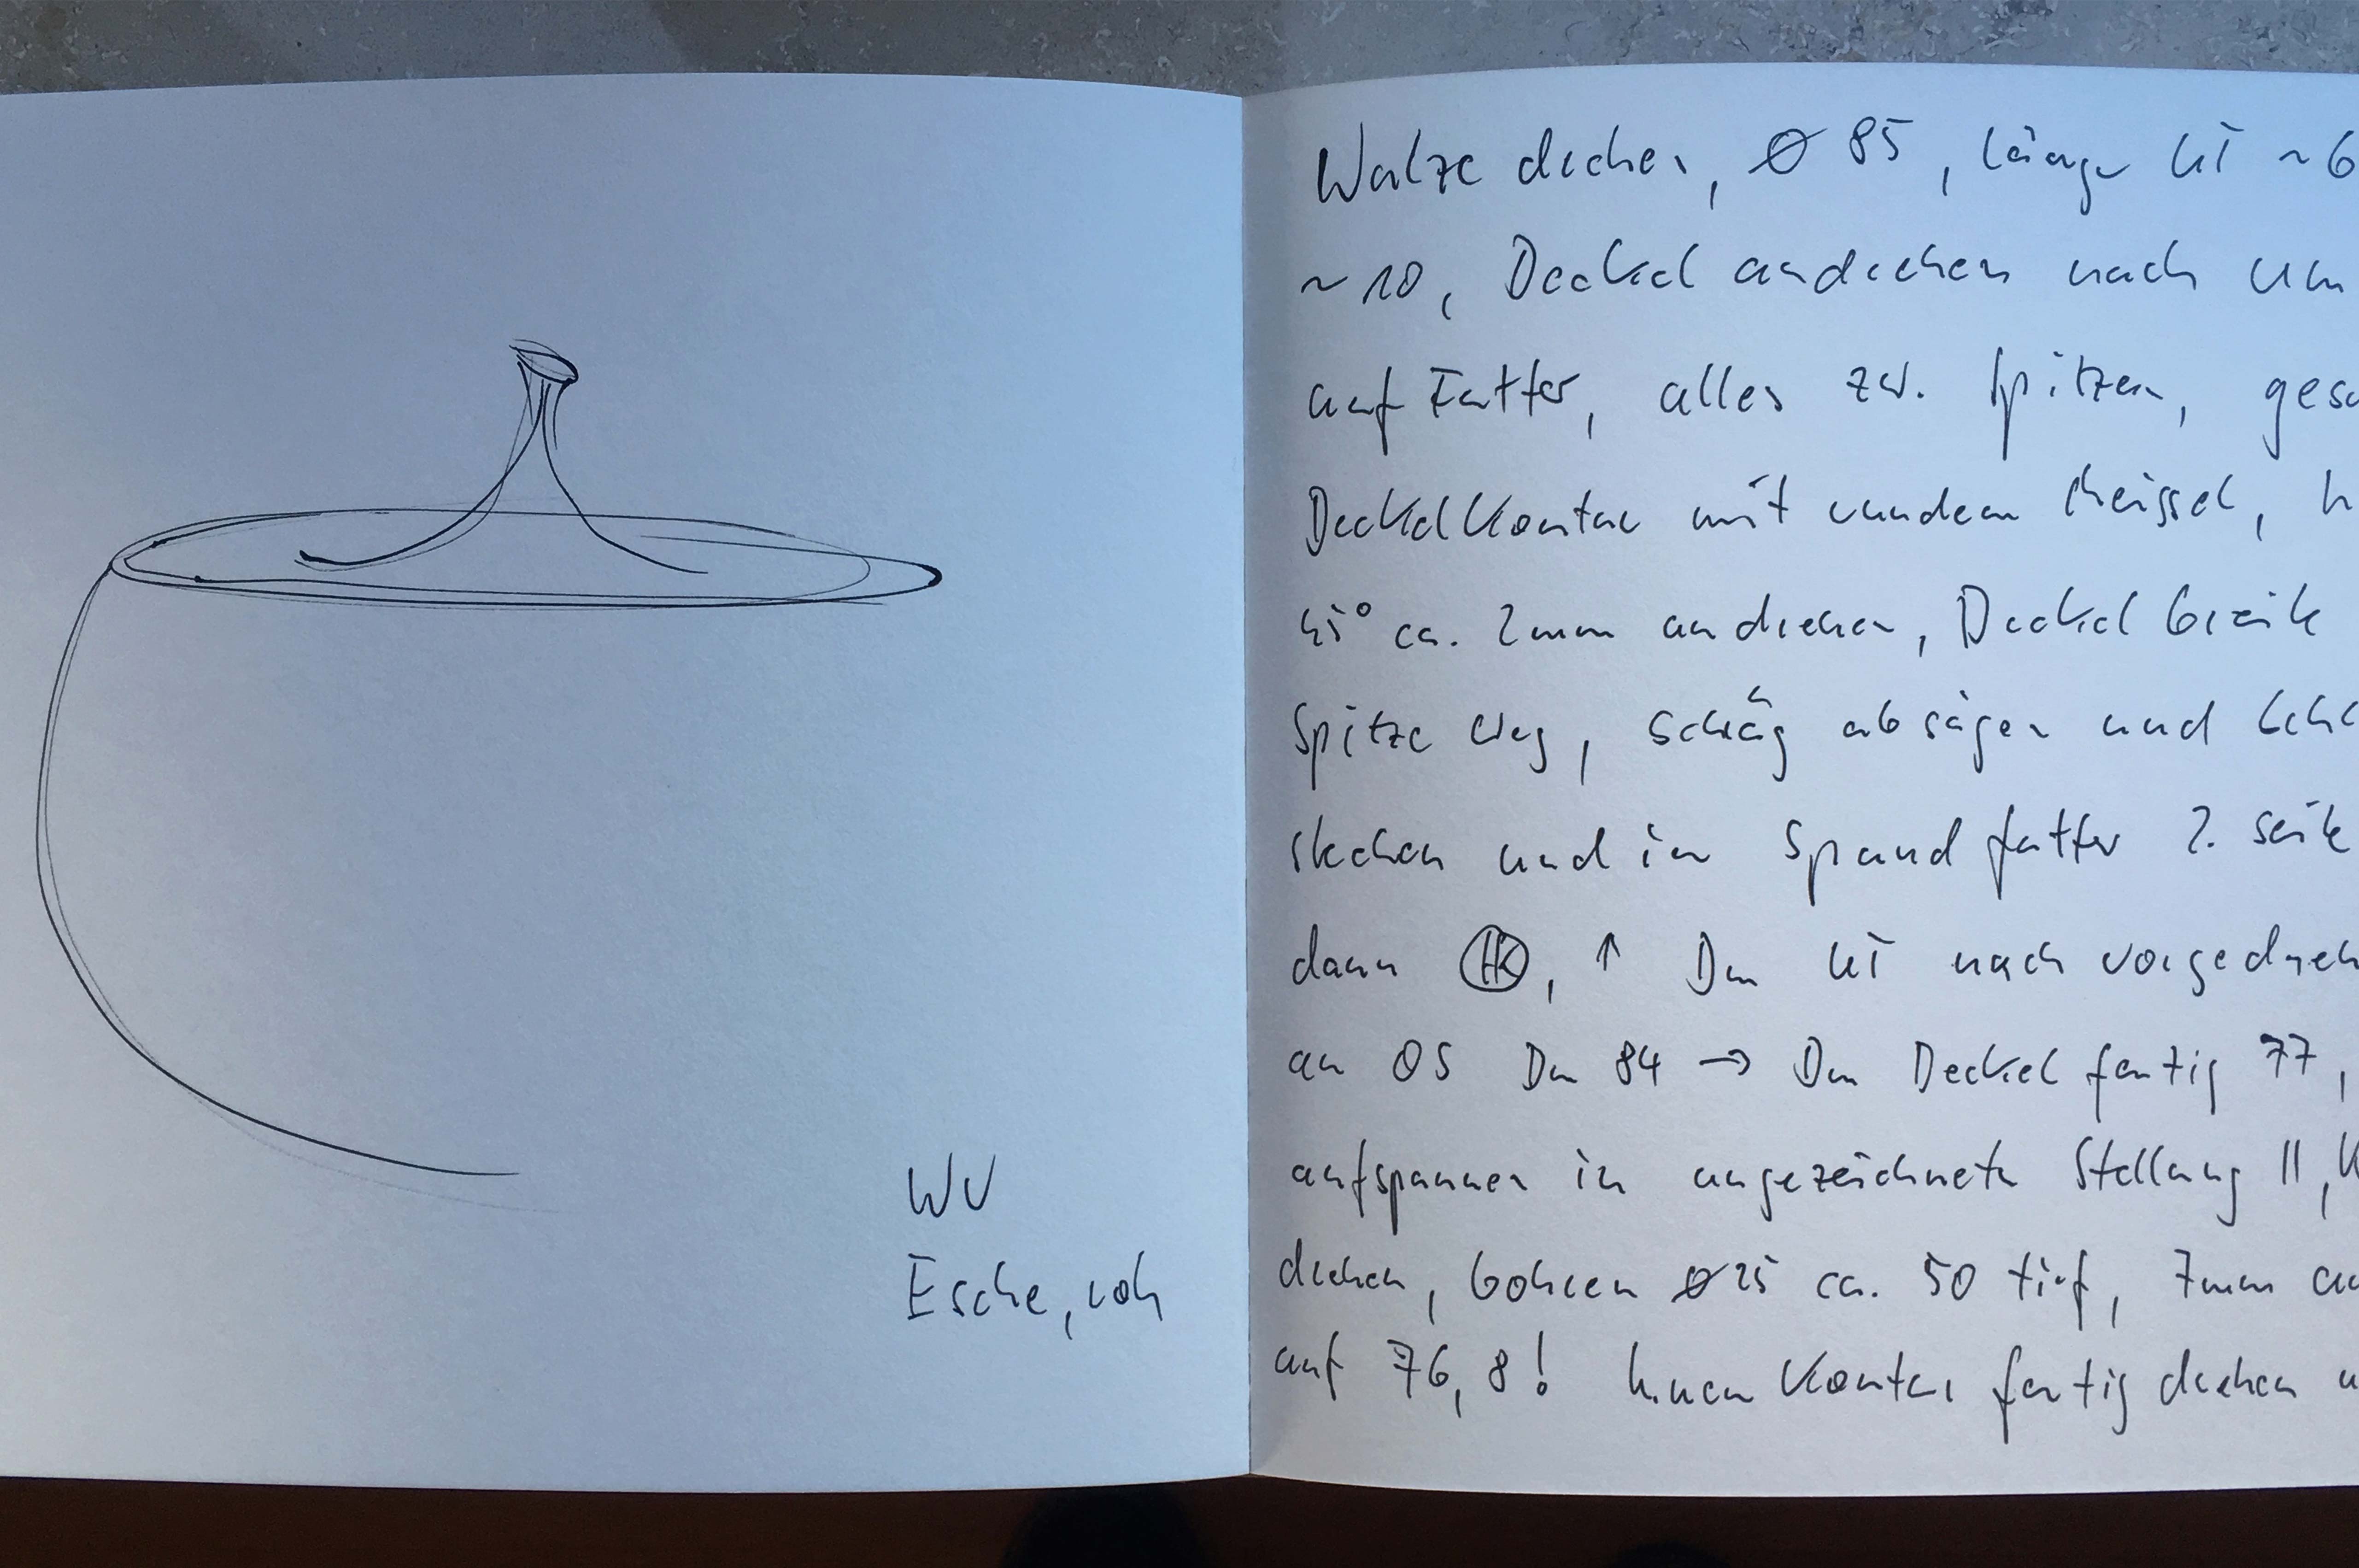 WV
Esche, roh
Walze drehen, Ø 85, Länge UT ~6
~10, Deckel andrehen nach um
auf Futter, alles zw. Spitzen, gesc
Deckelkontur mit rundem Meissel, h
45° ca. 2mm andrehen, Deckel breite
Spitze weg, schräg absägen und
stechen und in Spundfutter 2. Seite
dann HK, ↑ Dm UT nach vorgedreh
an OS Dm 84 → Dm Deckel fertig 77,
aufspannen in angezeichnete Stellung ||,
drehen, bohren Ø 25 ca. 50 tief, 7mm
auf 76,8! Innen Kontur fertig drehen u